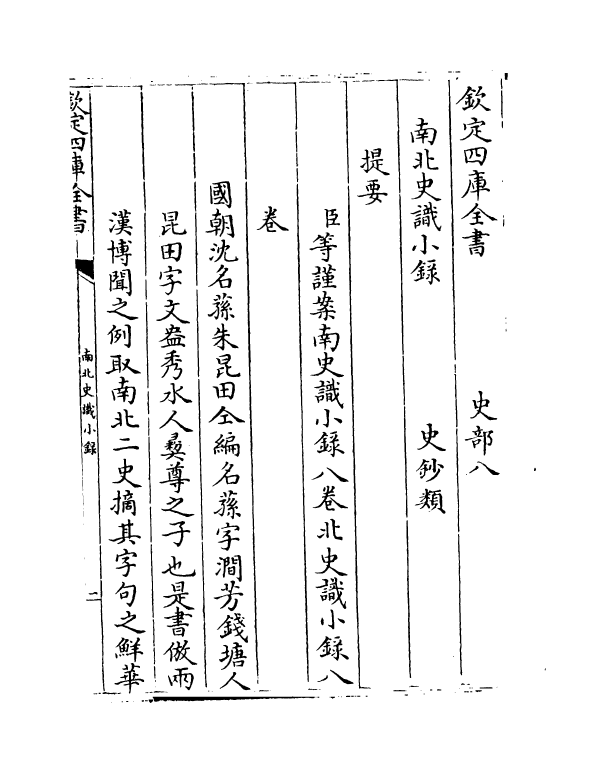 欽定四庫全書　史部八
南北史識小錄　史鈔類
提要
臣等謹案南史識小錄八卷北史識小錄八
卷
國朝沈名蓀朱昆田仝編名蓀字澗芳錢塘人
昆田字文盎秀水人彛尊之子也是書倣兩
漢博聞之例取南北二史摘其字句之鮮華
欽定四庫全書
南北史識小錄
二